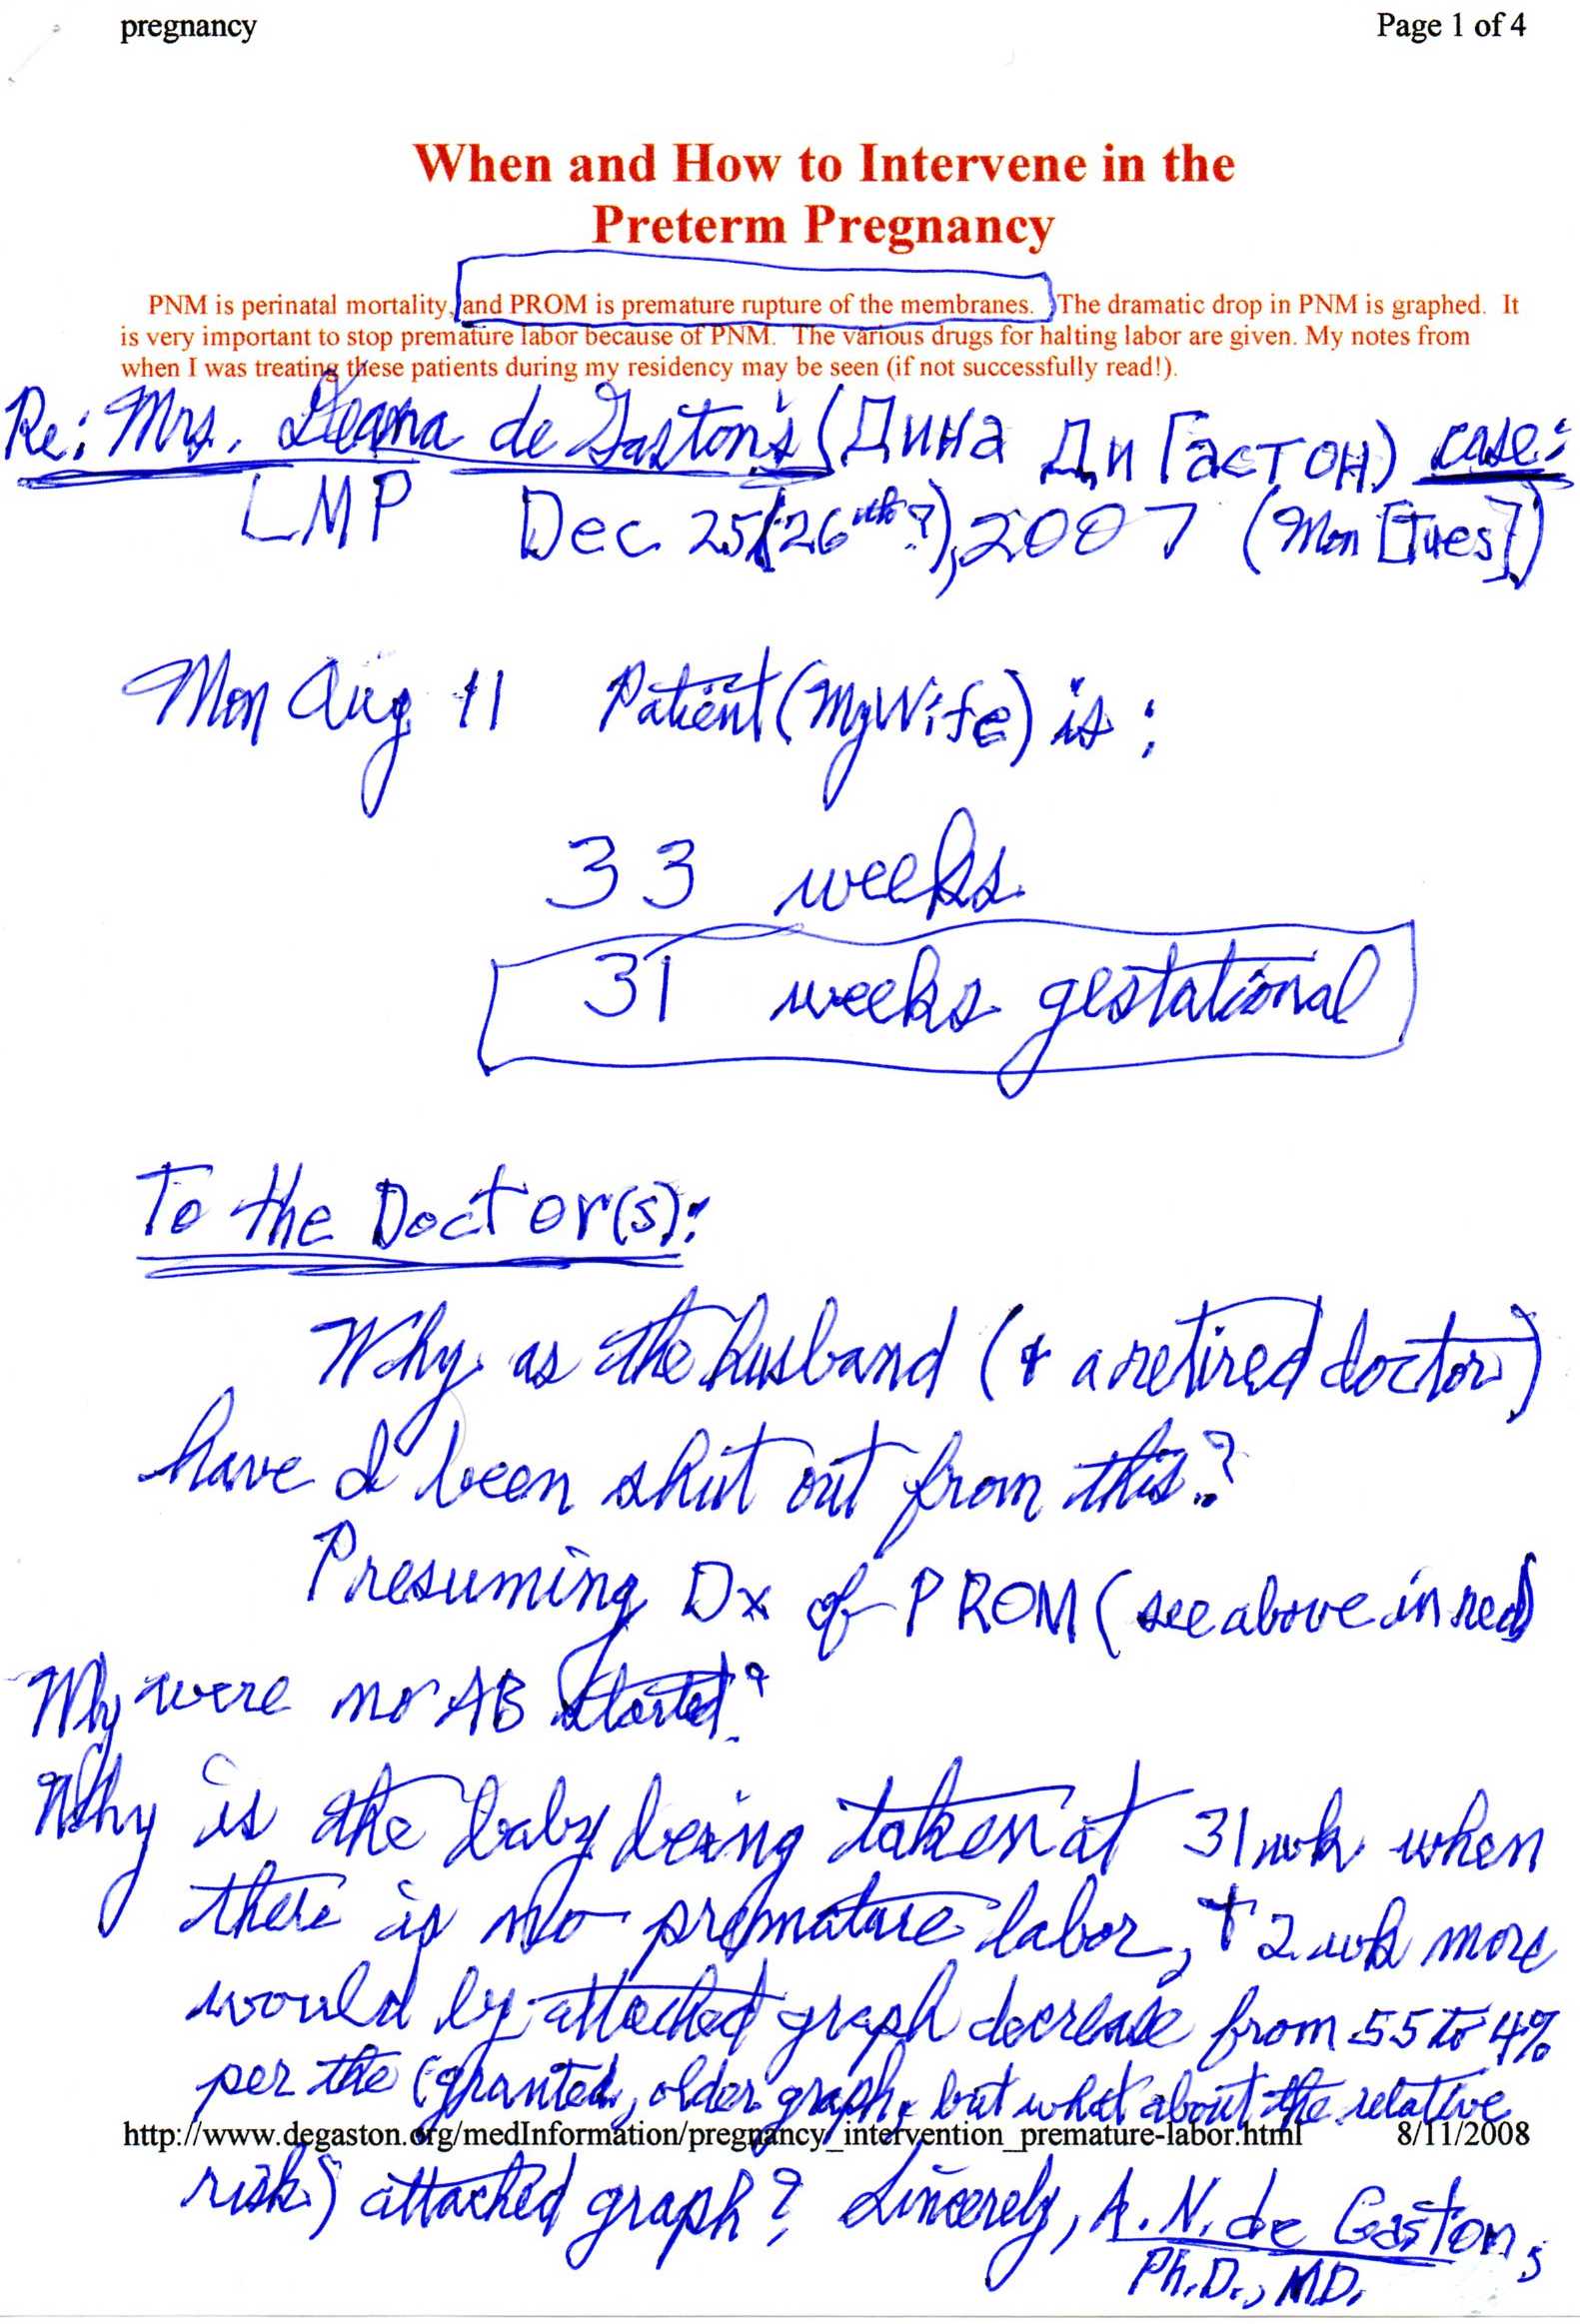 pregnancy Page 1 of 4
When and How to Intervene in the
Preterm Pregnancy
PNM is perinatal mortality, and PROM is premature rupture of the membranes. The dramatic drop in PNM is graphed. It
is very important to stop premature labor because of PNM. The various drugs for halting labor are given. My notes from
when I was treating these patients during my residency may be seen (if not successfully read!).
Re: Mrs. Deana de Gaston's (Дина Ди Гастон) case:
LMP Dec 25 (26th?), 2007 (Mon [Tues])
Mon Aug 11 Patient (My Wife) is:
33 weeks
31 weeks gestational
To the Doctor(s):
Why as the husband (& a retired doctor)
have I been shut out from this?
Presuming Dx of PROM (see above in red)
Why were no AB started?
Why is the baby being taken at 31 wk when
there is no premature labor, & 2 wk more
would by attached graph decrease from 55 to 4%
per the (granted, older graph, but what about the relative
http://www.degaston.org/medInformation/pregnancy_intervention_premature-labor.html 8/11/2008
risk?) attached graph? Sincerely, A. N. de Gaston,
Ph.D., MD.